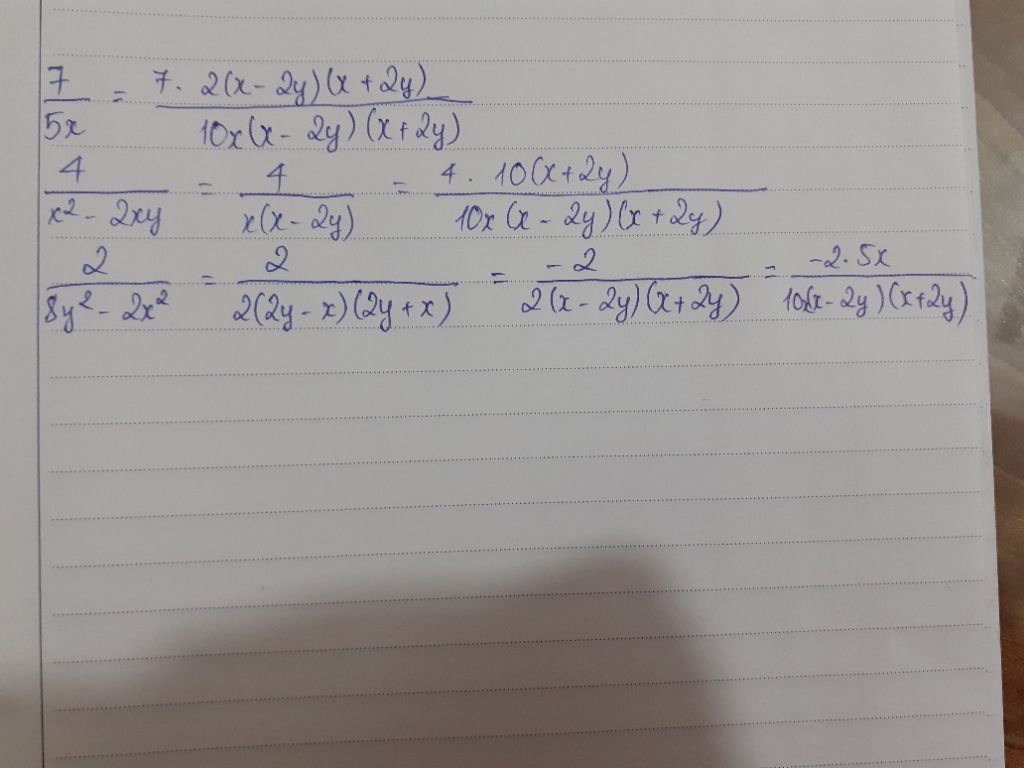 7/5x = 7. 2(x - 2y)(x + 2y)/10x(x - 2y)(x + 2y)
4/x² - 2xy = 4/x(x - 2y) = 4. 10(x + 2y)/10x(x - 2y)(x + 2y)
2/8y² - 2x² = 2/2(2y - x)(2y + x) = -2/2(x - 2y)(x + 2y) = -2.5x/10x(x - 2y)(x + 2y)